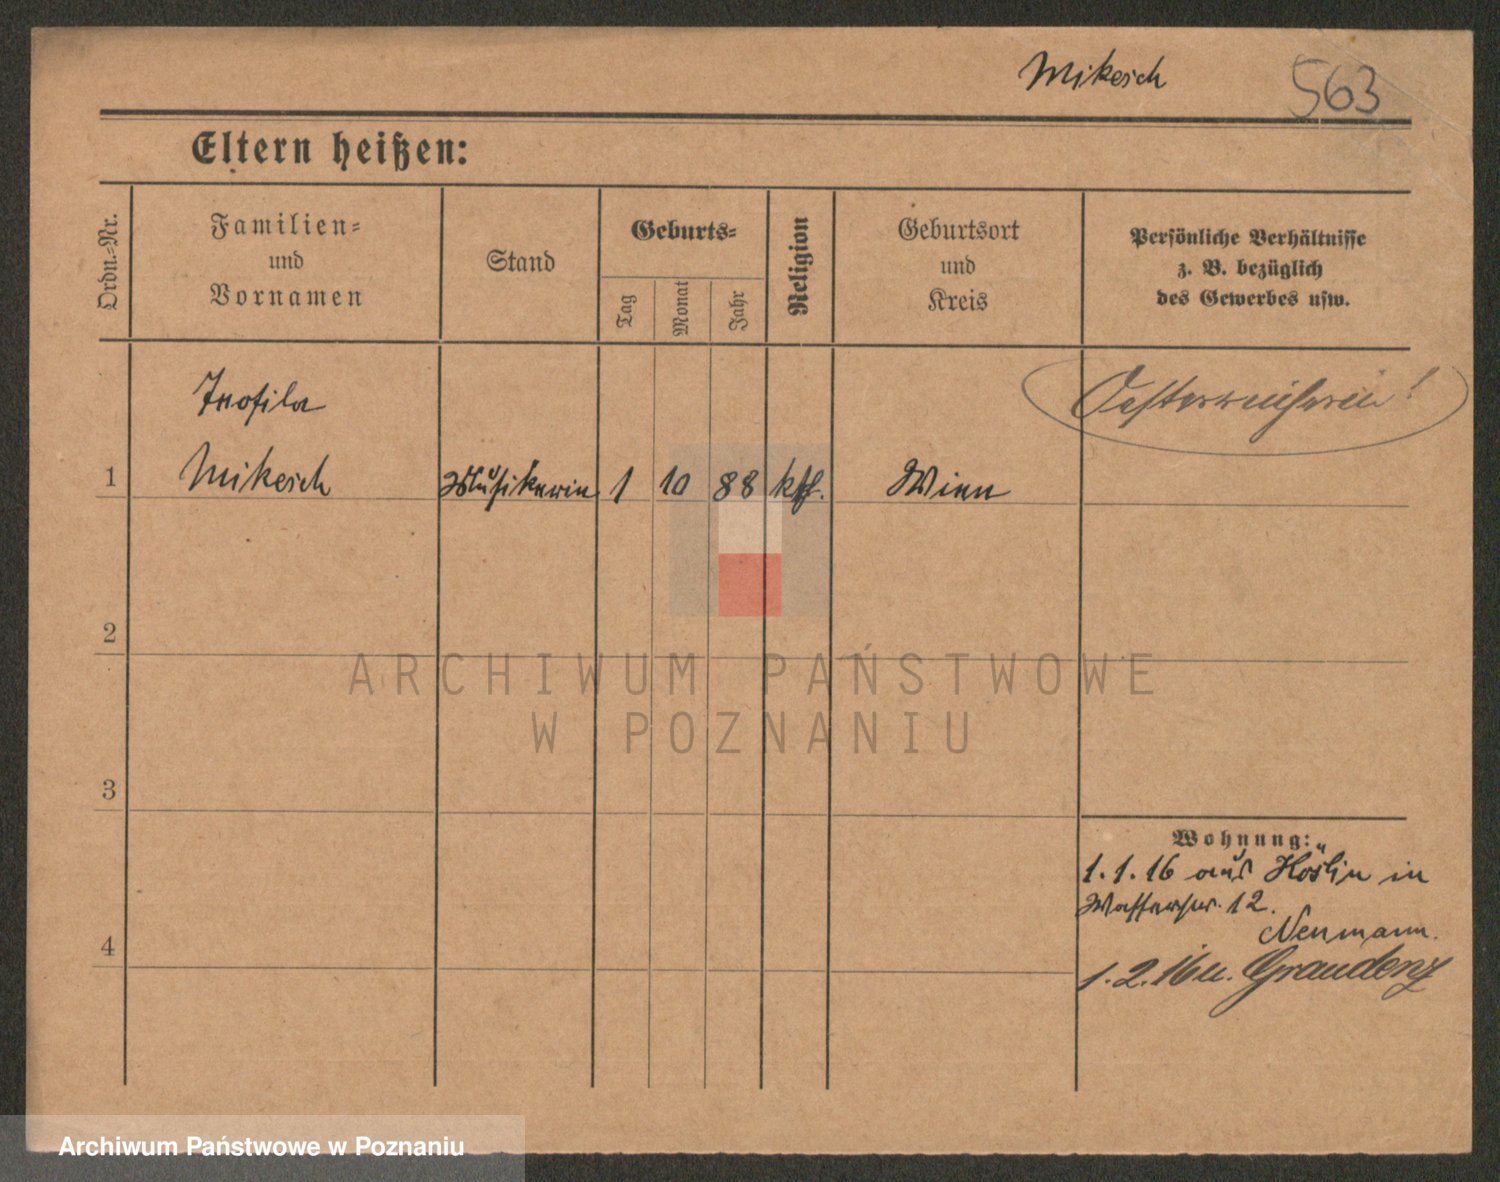 Mikesch
563
Eltern heißen:
Ordn.-Nr.
Familien-
und
Vornamen
Stand
Geburts-
Tag
Monat
Jahr
Religion
Geburtsort
und
Kreis
Persönliche Verhältnisse
z. B. bezüglich
des Gewerbes usw.
1
Mikesch
Musikerin
1
10
88
kth.
Wien
Oesterreicherin!
2
3
4
Wohnung:
1.1.16 aus Köslin in
Wasserstr. 12.
Neumann.
1.2.16 n. Graudenz
ARCHIWUM PAŃSTWOWE
W POZNANIU
Archiwum Państwowe w Poznaniu